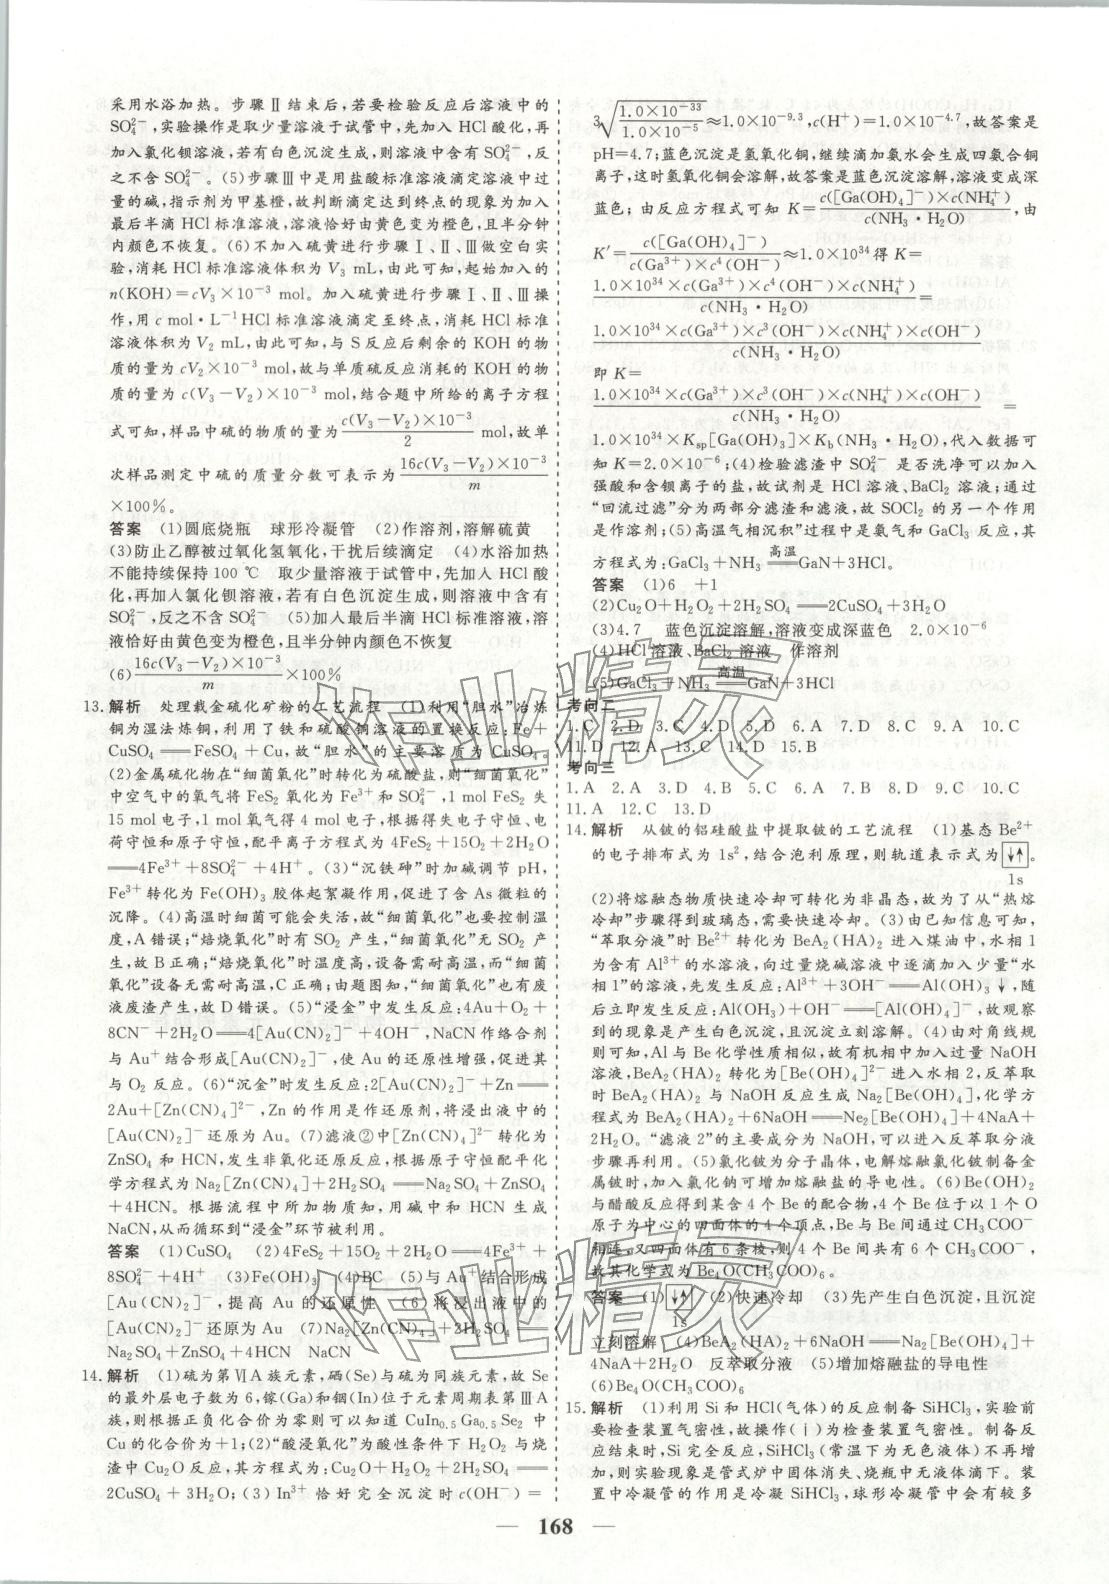 采用水浴加热。步骤Ⅱ结束后,若要检验反应后溶液中的
SO₄²⁻,实验操作是取少量溶液于试管中,先加入 HCl 酸化,再
加入氯化钡溶液,若有白色沉淀生成,则溶液中含有 SO₄²⁻,反
之不含 SO₄²⁻。(5)步骤Ⅲ中是用盐酸标准溶液滴定溶液中过
量的碱,指示剂为甲基橙,故判断滴定达到终点的现象为加入
最后半滴 HCl 标准溶液,溶液恰好由黄色变为橙色,且半分钟
内颜色不恢复。(6)不加入硫黄进行步骤Ⅰ、Ⅱ、Ⅲ做空白实
验,消耗 HCl 标准溶液体积为 V₃ mL,由此可知,起始加入的
n(KOH)=cV₃×10⁻³ mol。加入硫黄进行步骤Ⅰ、Ⅱ、Ⅲ操
作,用 c mol·L⁻¹HCl 标准溶液滴定至终点,消耗 HCl 标准
溶液体积为 V₂ mL,由此可知,与 S 反应后剩余的 KOH 的物
质的量为 cV₂×10⁻³ mol,故与单质硫反应消耗的 KOH 的物
质的量为 c(V₃-V₂)×10⁻³ mol,结合题中所给的离子方程
式可知,样品中硫的物质的量为 c(V₃-V₂)×10⁻³/2 mol,故单
次样品测定中硫的质量分数可表示为 16c(V₃-V₂)×10⁻³/m
×100%。
答案 (1)圆底烧瓶 球形冷凝管 (2)作溶剂,溶解硫黄
(3)防止乙醇被过氧化氢氧化,干扰后续滴定 (4)水浴加热
不能持续保持 100 ℃ 取少量溶液于试管中,先加入 HCl 酸
化,再加入氯化钡溶液,若有白色沉淀生成,则溶液中含有
SO₄²⁻,反之不含 SO₄²⁻ (5)加入最后半滴 HCl 标准溶液,溶
液恰好由黄色变为橙色,且半分钟内颜色不恢复
(6) 16c(V₃-V₂)×10⁻³/m ×100%
13. 解析 处理载金硫化矿粉的工艺流程 (1)利用“胆水”冶炼
铜为湿法炼铜,利用了铁和硫酸铜溶液的置换反应,Fe+
CuSO₄══FeSO₄+Cu,故“胆水”的主要溶质为 CuSO₄。
(2)金属硫化物在“细菌氧化”时转化为硫酸盐,则“细菌氧化”
中空气中的氧气将 FeS₂ 氧化为 Fe³⁺ 和 SO₄²⁻,1 mol FeS₂ 失
15 mol 电子,1 mol 氧气得 4 mol 电子,根据得失电子守恒、电
荷守恒和原子守恒,配平离子方程式为 4FeS₂+15O₂+2H₂O
══4Fe³⁺+8SO₄²⁻+4H⁺。(3)“沉铁砷”时加碱调节 pH,
Fe³⁺ 转化为 Fe(OH)₃ 胶体起絮凝作用,促进了含 As 微粒的
沉降。(4)高温时细菌可能会失活,故“细菌氧化”也要控制温
度,A 错误;“焙烧氧化”时有 SO₂ 产生,“细菌氧化”无 SO₂ 产
生,故 B 正确;“焙烧氧化”时温度高,设备需耐高温,而“细菌
氧化”设备无需耐高温,C 正确;由题图知,“细菌氧化”也有废
液废渣产生,故 D 错误。(5)“浸金”中发生反应:4Au+O₂+
8CN⁻+2H₂O══4[Au(CN)₂]⁻+4OH⁻,NaCN 作络合剂
与 Au⁺ 结合形成[Au(CN)₂]⁻,使 Au 的还原性增强,促进其
与 O₂ 反应。(6)“沉金”时发生反应:2[Au(CN)₂]⁻+Zn══
2Au+[Zn(CN)₄]²⁻,Zn 的作用是作还原剂,将浸出液中的
[Au(CN)₂]⁻还原为 Au。(7)滤液②中[Zn(CN)₄]²⁻转化为
ZnSO₄ 和 HCN,发生非氧化还原反应,根据原子守恒配平化
学方程式为 Na₂[Zn(CN)₄]+2H₂SO₄══Na₂SO₄+ZnSO₄
+4HCN。根据流程中所加物质知,用碱中和 HCN 生成
NaCN,从而循环到“浸金”环节被利用。
答案 (1)CuSO₄ (2)4FeS₂+15O₂+2H₂O══4Fe³⁺+
8SO₄²⁻+4H⁺ (3)Fe(OH)₃ (4)BC (5)与 Au⁺ 结合形成
[Au(CN)₂]⁻,提高 Au 的还原性 (6)将浸出液中的
[Au(CN)₂]⁻还原为 Au (7)Na₂[Zn(CN)₄]+2H₂SO₄══
Na₂SO₄+ZnSO₄+4HCN NaCN
14. 解析 (1)硫为第ⅥA 族元素,硒(Se)与硫为同族元素,故 Se
的最外层电子数为 6,镓(Ga)和铟(In)位于元素周期表第ⅢA
族,则根据正负化合价为零则可以知道 CuIn₀.₅Ga₀.₅Se₂ 中
Cu 的化合价为+1;(2)“酸浸氧化”为酸性条件下 H₂O₂ 与烧
渣中 Cu₂O 反应,其方程式为:Cu₂O+H₂O₂+2H₂SO₄══
2CuSO₄+3H₂O;(3)In³⁺ 恰好完全沉淀时 c(OH⁻)=
³√(1.0×10⁻³³/1.0×10⁻⁵)≈1.0×10⁻⁹·³,c(H⁺)=1.0×10⁻⁴·⁷,故答案是
pH=4.7;蓝色沉淀是氢氧化铜,继续滴加氨水会生成四氨合铜
离子,这时氢氧化铜会溶解,故答案是蓝色沉淀溶解,溶液变成深
蓝色;由反应方程式可知 K= c([Ga(OH)₄]⁻)×c(NH₄⁺)/c(NH₃·H₂O),由
K′= c([Ga(OH)₄]⁻)/c(Ga³⁺)×c⁴(OH⁻) =1.0×10³⁴得 K=
1.0×10³⁴×c(Ga³⁺)×c⁴(OH⁻)×c(NH₄⁺)/c(NH₃·H₂O) =
1.0×10³⁴×c(Ga³⁺)×c³(OH⁻)×c(NH₄⁺)×c(OH⁻)/c(NH₃·H₂O),
即 K=
1.0×10³⁴×c(Ga³⁺)×c³(OH⁻)×c(NH₄⁺)×c(OH⁻)/c(NH₃·H₂O) =
1.0×10³⁴×Ksp[Ga(OH)₃]×Kb(NH₃·H₂O),代入数据可
知 K=2.0×10⁻⁶;(4)检验滤渣中 SO₄²⁻ 是否洗净可以加入
强酸和含钡离子的盐,故试剂是 HCl 溶液、BaCl₂ 溶液;通过
“回流过滤”分为两部分滤渣和滤液,故 SOCl₂ 的另一个作用
是作溶剂;(5)高温气相沉积”过程中是氨气和 GaCl₃ 反应,其
方程式为:GaCl₃+NH₃ ══(高温) GaN+3HCl。
答案 (1)6 +1
(2)Cu₂O+H₂O₂+2H₂SO₄══2CuSO₄+3H₂O
(3)4.7 蓝色沉淀溶解,溶液变成深蓝色 2.0×10⁻⁶
(4)HCl 溶液、BaCl₂ 溶液 作溶剂
(5)GaCl₃+NH₃ ══(高温) GaN+3HCl
考向二
1.C 2.D 3.C 4.D 5.D 6.A 7.D 8.C 9.A 10.C
11.D 12.A 13.C 14.D 15.B
考向三
1.A 2.A 3.D 4.B 5.C 6.A 7.B 8.D 9.C 10.C
11.A 12.C 13.D
14. 解析 从铍的铝硅酸盐中提取铍的工艺流程 (1)基态 Be²⁺
的电子排布式为 1s²,结合泡利原理,则轨道表示式为 ↓↑ 。
1s
(2)将熔融态物质快速冷却可转化为非晶态,故为了从“热熔
冷却”步骤得到玻璃态,需要快速冷却。(3)由已知信息可知,
“萃取分液”时 Be²⁺ 转化为 BeA₂(HA)₂ 进入煤油中,水相 1
为含有 Al³⁺ 的水溶液,向过量烧碱溶液中逐滴加入少量“水
相 1”的溶液,先发生反应:Al³⁺+3OH⁻══Al(OH)₃↓,随
后立即发生反应:Al(OH₃)+OH⁻══[Al(OH)₄]⁻,故观察
到的现象是产生白色沉淀,且沉淀立刻溶解。(4)由对角线规
则可知,Al 与 Be 化学性质相似,故有机相中加入过量 NaOH
溶液,BeA₂(HA)₂ 转化为[Be(OH)₄]²⁻进入水相 2,反萃取
时 BeA₂(HA)₂ 与 NaOH 反应生成 Na₂[Be(OH)₄],化学方
程式为 BeA₂(HA)₂+6NaOH══Ne₂[Be(OH)₄]+4NaA+
2H₂O。“滤液 2”的主要成分为 NaOH,可以进入反萃取分液
步骤再利用。(5)氯化铍为分子晶体,电解熔融氯化铍制备金
属铍时,加入氯化钠可增加熔融盐的导电性。(6)Be(OH)₂
与醋酸反应得到某含 4 个 Be 的配合物,4 个 Be 位于以 1 个 O
原子为中心的四面体的 4 个顶点,Be 与 Be 间通过 CH₃COO⁻
相连,又四面体有 6 条棱,则 4 个 Be 间共有 6 个 CH₃COO⁻,
故其化学式为 Be₄O(CH₃COO)₆。
答案 (1) ↓↑ (2)快速冷却 (3)先产生白色沉淀,且沉淀
1s
立刻溶解 (4)BeA₂(HA)₂+6NaOH══Na₂[Be(OH)₄]+
4NaA+2H₂O 反萃取分液 (5)增加熔融盐的导电性
(6)Be₄O(CH₃COO)₆
15. 解析 (1)利用 Si 和 HCl(气体)的反应制备 SiHCl₃,实验前
要检查装置气密性,故操作(ⅰ)为检查装置气密性。制备反
应结束时,Si 完全反应,SiHCl₃(常温下为无色液体)不再增
加,则实验现象是管式炉中固体消失、烧瓶中无液体滴下。装
置中冷凝管的作用是冷凝 SiHCl₃,球形冷凝管中会有较多
— 168 —
作业精灵
作业精灵